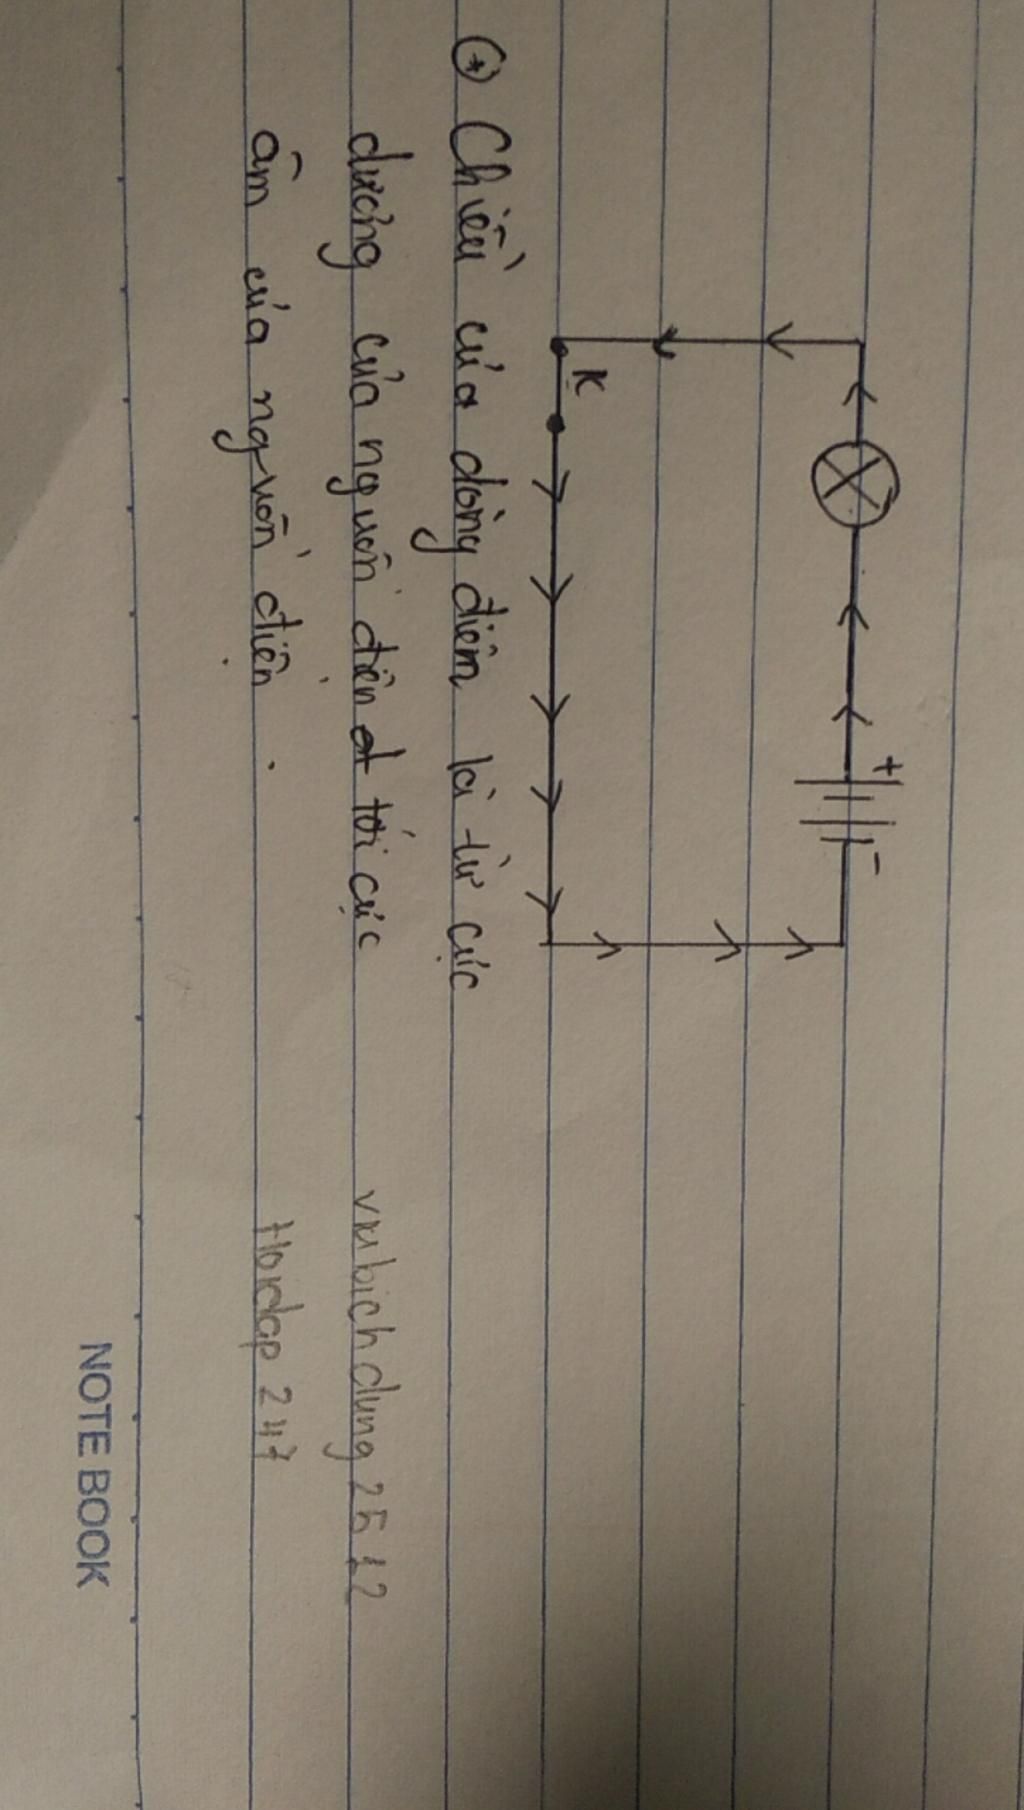 + -
K
(*) Chiều của dòng điêm là từ cực
dương của nguồn điện tới cực
âm của nguồn điện.
vubichdung2512
Hoidap247
NOTE BOOK